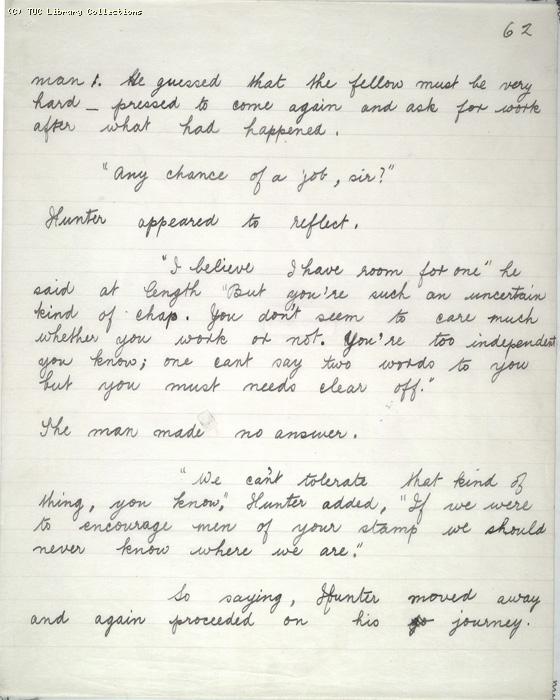 (C) TUC Library Collections
62
man. He guessed that the fellow must be very
hard-pressed to come again and ask for work
after what had happened.
"Any chance of a job, sir?"
Hunter appeared to reflect.
"I believe I have room for one" he
said at length "But you're such an uncertain
kind of chap. You don't seem to care much
whether you work or not. You're too independent
you know; one cant say two words to you
but you must needs clear off."
The man made no answer.
"We can't tolerate that kind of
thing, you know," Hunter added, "If we were
to encourage men of your stamp we should
never know where we are."
So saying, Hunter moved away
and again proceeded on his journey.